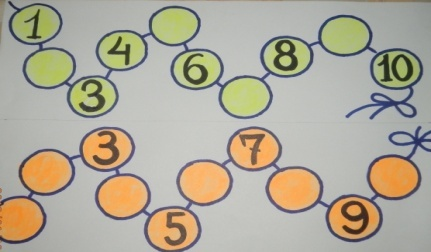 1 3 4 6 8 10
3 5 7 9